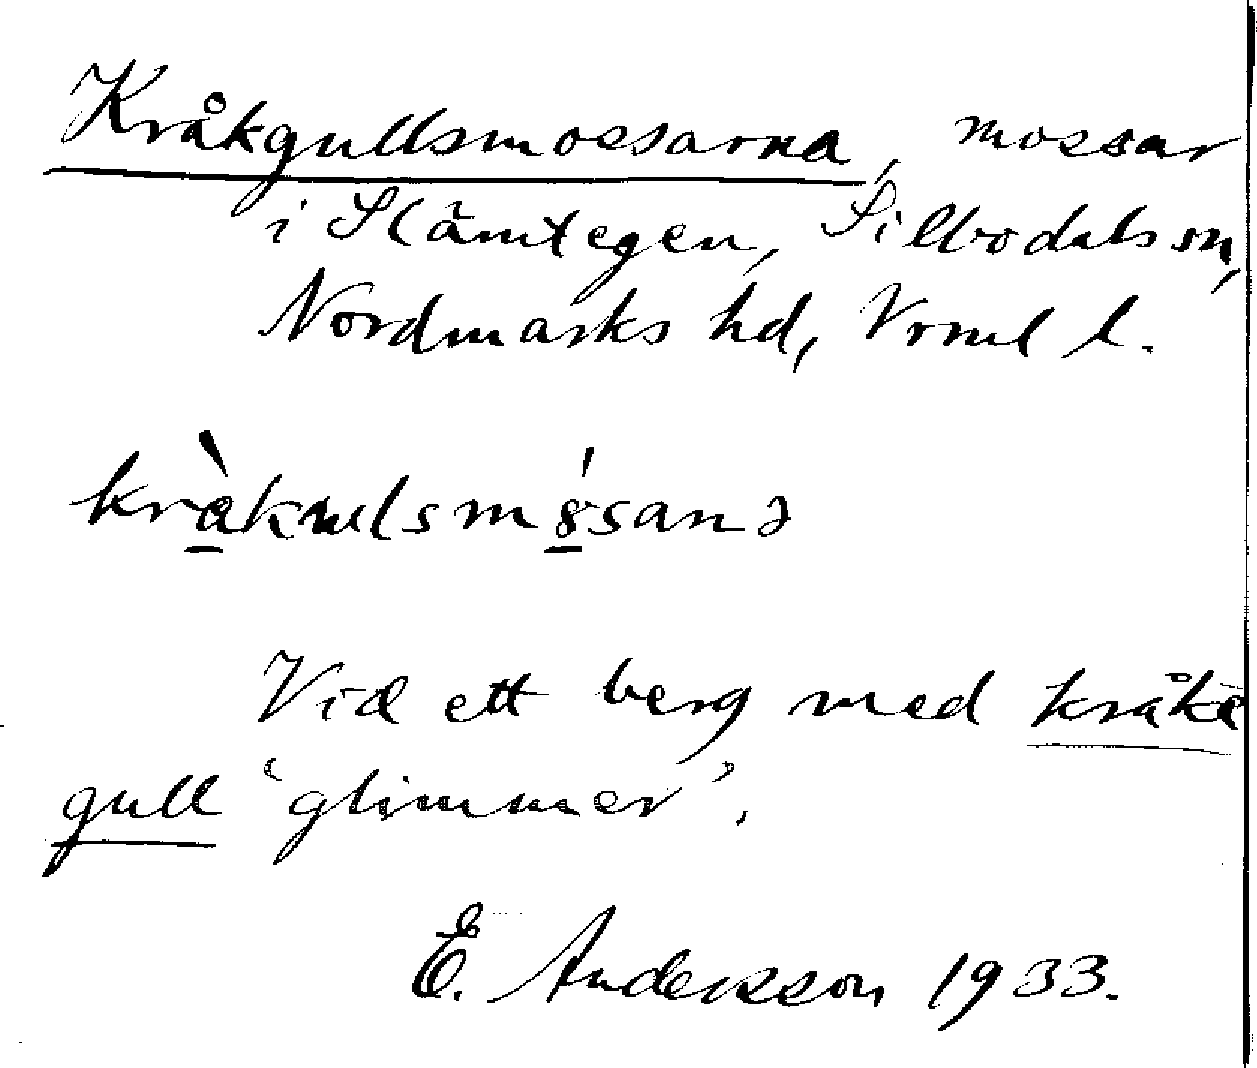 Kråkgullsmossarna, mossar
i Slämtegen, Silbodals sn,
Nordmarks hd, Vrml l.
Vid ett berg med kråke
gull 'glimmer'.
E. Andersson 1933.